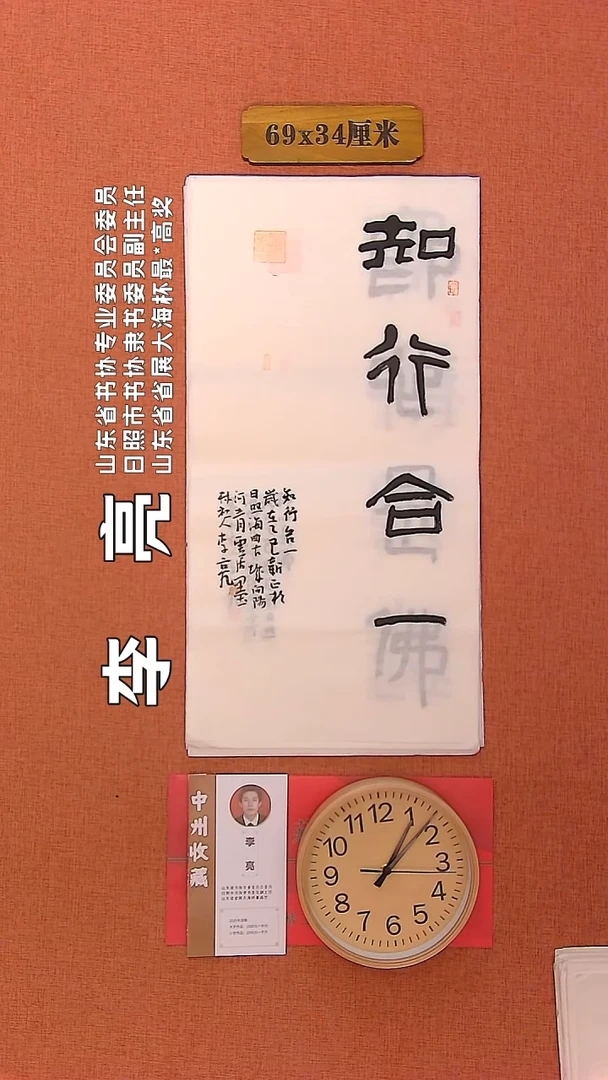 69x34厘米
知行合一
知行合一
歲在乙巳新正於
日照海曲古城向陽
河上月雲居墨
林和人李亮
李亮
山东省书协专业委员会委员
日照市书协隶书委员副主任
山东省省展大海杯最*高奖
李亮
12
1
2
3
4
5
6
7
8
9
10
11